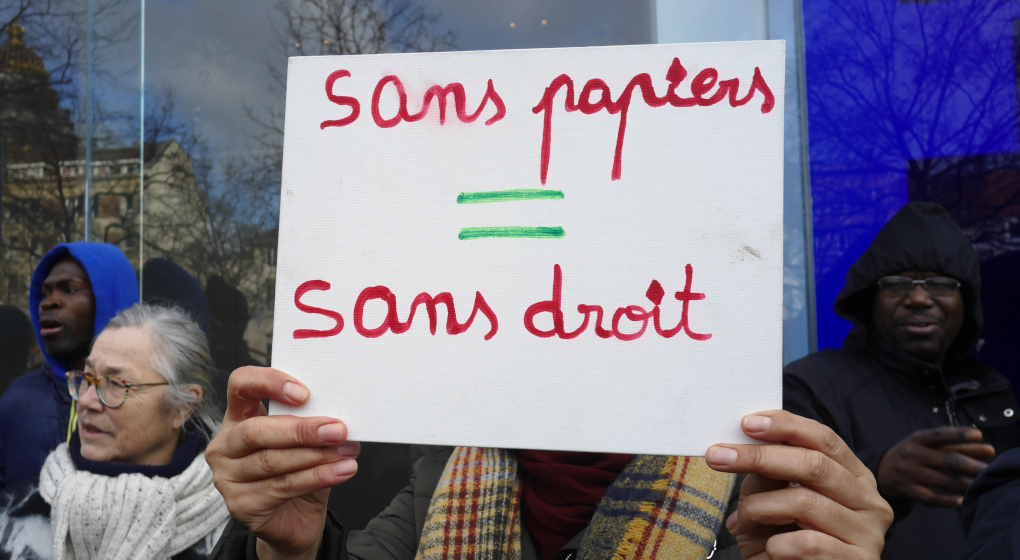 sans papiers
=
sans droit